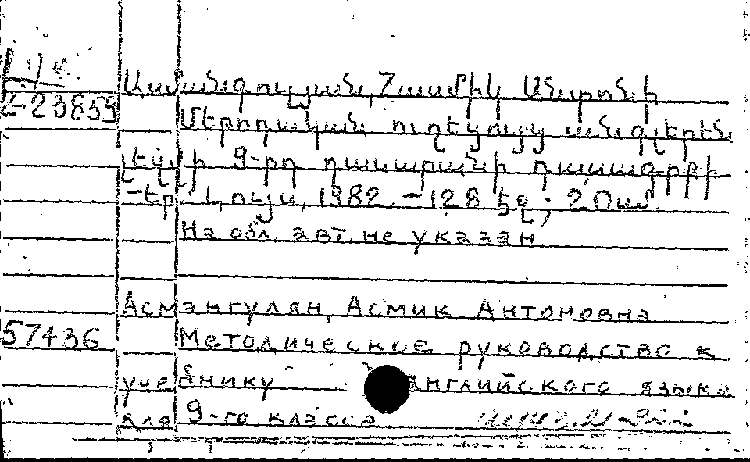 2-23859
Ասմանգուլյան, Հասմիկ Անտոնի
Մեթոդական ուղեցույց անգլերեն
լեզվի 9-րդ դասարանի դասագրքի
-Եր.: Լույս, 1982. -128 էջ; 20սմ
На обл. авт. не указан
Асмангулян, Асмик Антоновна
57436 Методическое руководство к
учебнику английского языка
для 9-го класса